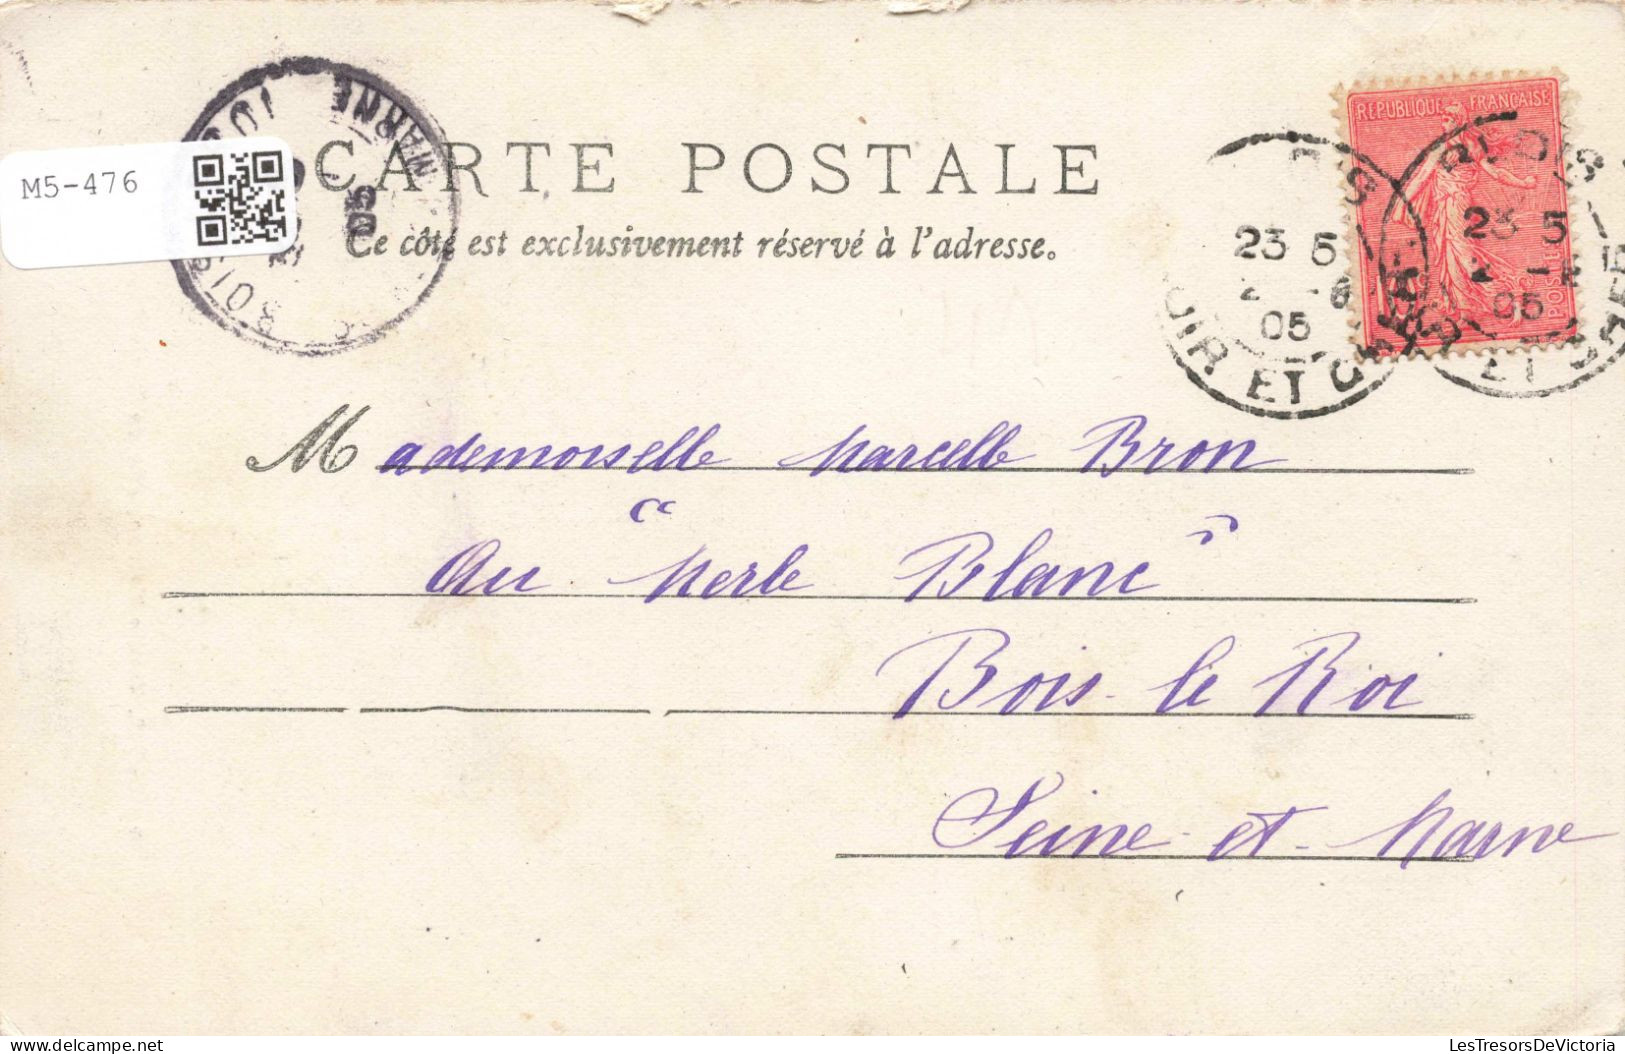 M5-476
CARTE POSTALE
Ce côté est exclusivement réservé à l'adresse.
MARNE
05
REPUBLIQUE FRANÇAISE
BLOIS
23 5
05
LOIR ET CHER
23 5
05
Mademoiselle Marcelle Bron
Au "Merle Blanc"
Bois-le Roi
Seine-et-Marne
LesTresorsDeVictoria